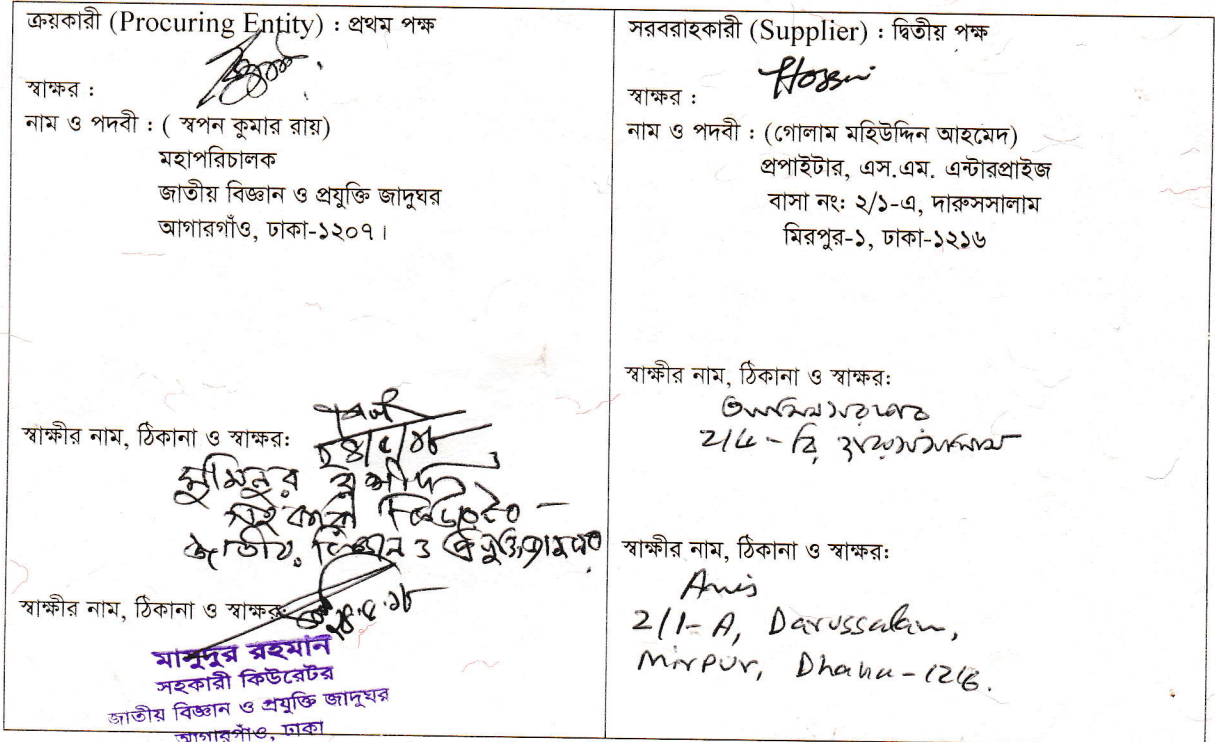 ক্রয়কারী (Procuring Entity) : প্রথম পক্ষ
স্বাক্ষর :
নাম ও পদবী : ( স্বপন কুমার রায়)
মহাপরিচালক
জাতীয় বিজ্ঞান ও প্রযুক্তি জাদুঘর
আগারগাঁও, ঢাকা-১২০৭।
স্বাক্ষীর নাম, ঠিকানা ও স্বাক্ষর:
সহকারী
জাতীয় বিজ্ঞান ও প্রযুক্তি জাদুঘর
স্বাক্ষীর নাম, ঠিকানা ও স্বাক্ষর:
মাসুদুর রহমান
সহকারী কিউরেটর
জাতীয় বিজ্ঞান ও প্রযুক্তি জাদুঘর
আগারগাঁও, ঢাকা
সরবরাহকারী (Supplier) : দ্বিতীয় পক্ষ
স্বাক্ষর :
নাম ও পদবী : (গোলাম মহিউদ্দিন আহমেদ)
প্রপাইটার, এস.এম. এন্টারপ্রাইজ
বাসা নং: ২/১-এ, দারুসসালাম
মিরপুর-১, ঢাকা-১২১৬
স্বাক্ষীর নাম, ঠিকানা ও স্বাক্ষর:
স্বাক্ষীর নাম, ঠিকানা ও স্বাক্ষর:
Anis
2/1-A, Darussalam,
Mirpur, Dhaka-1216.